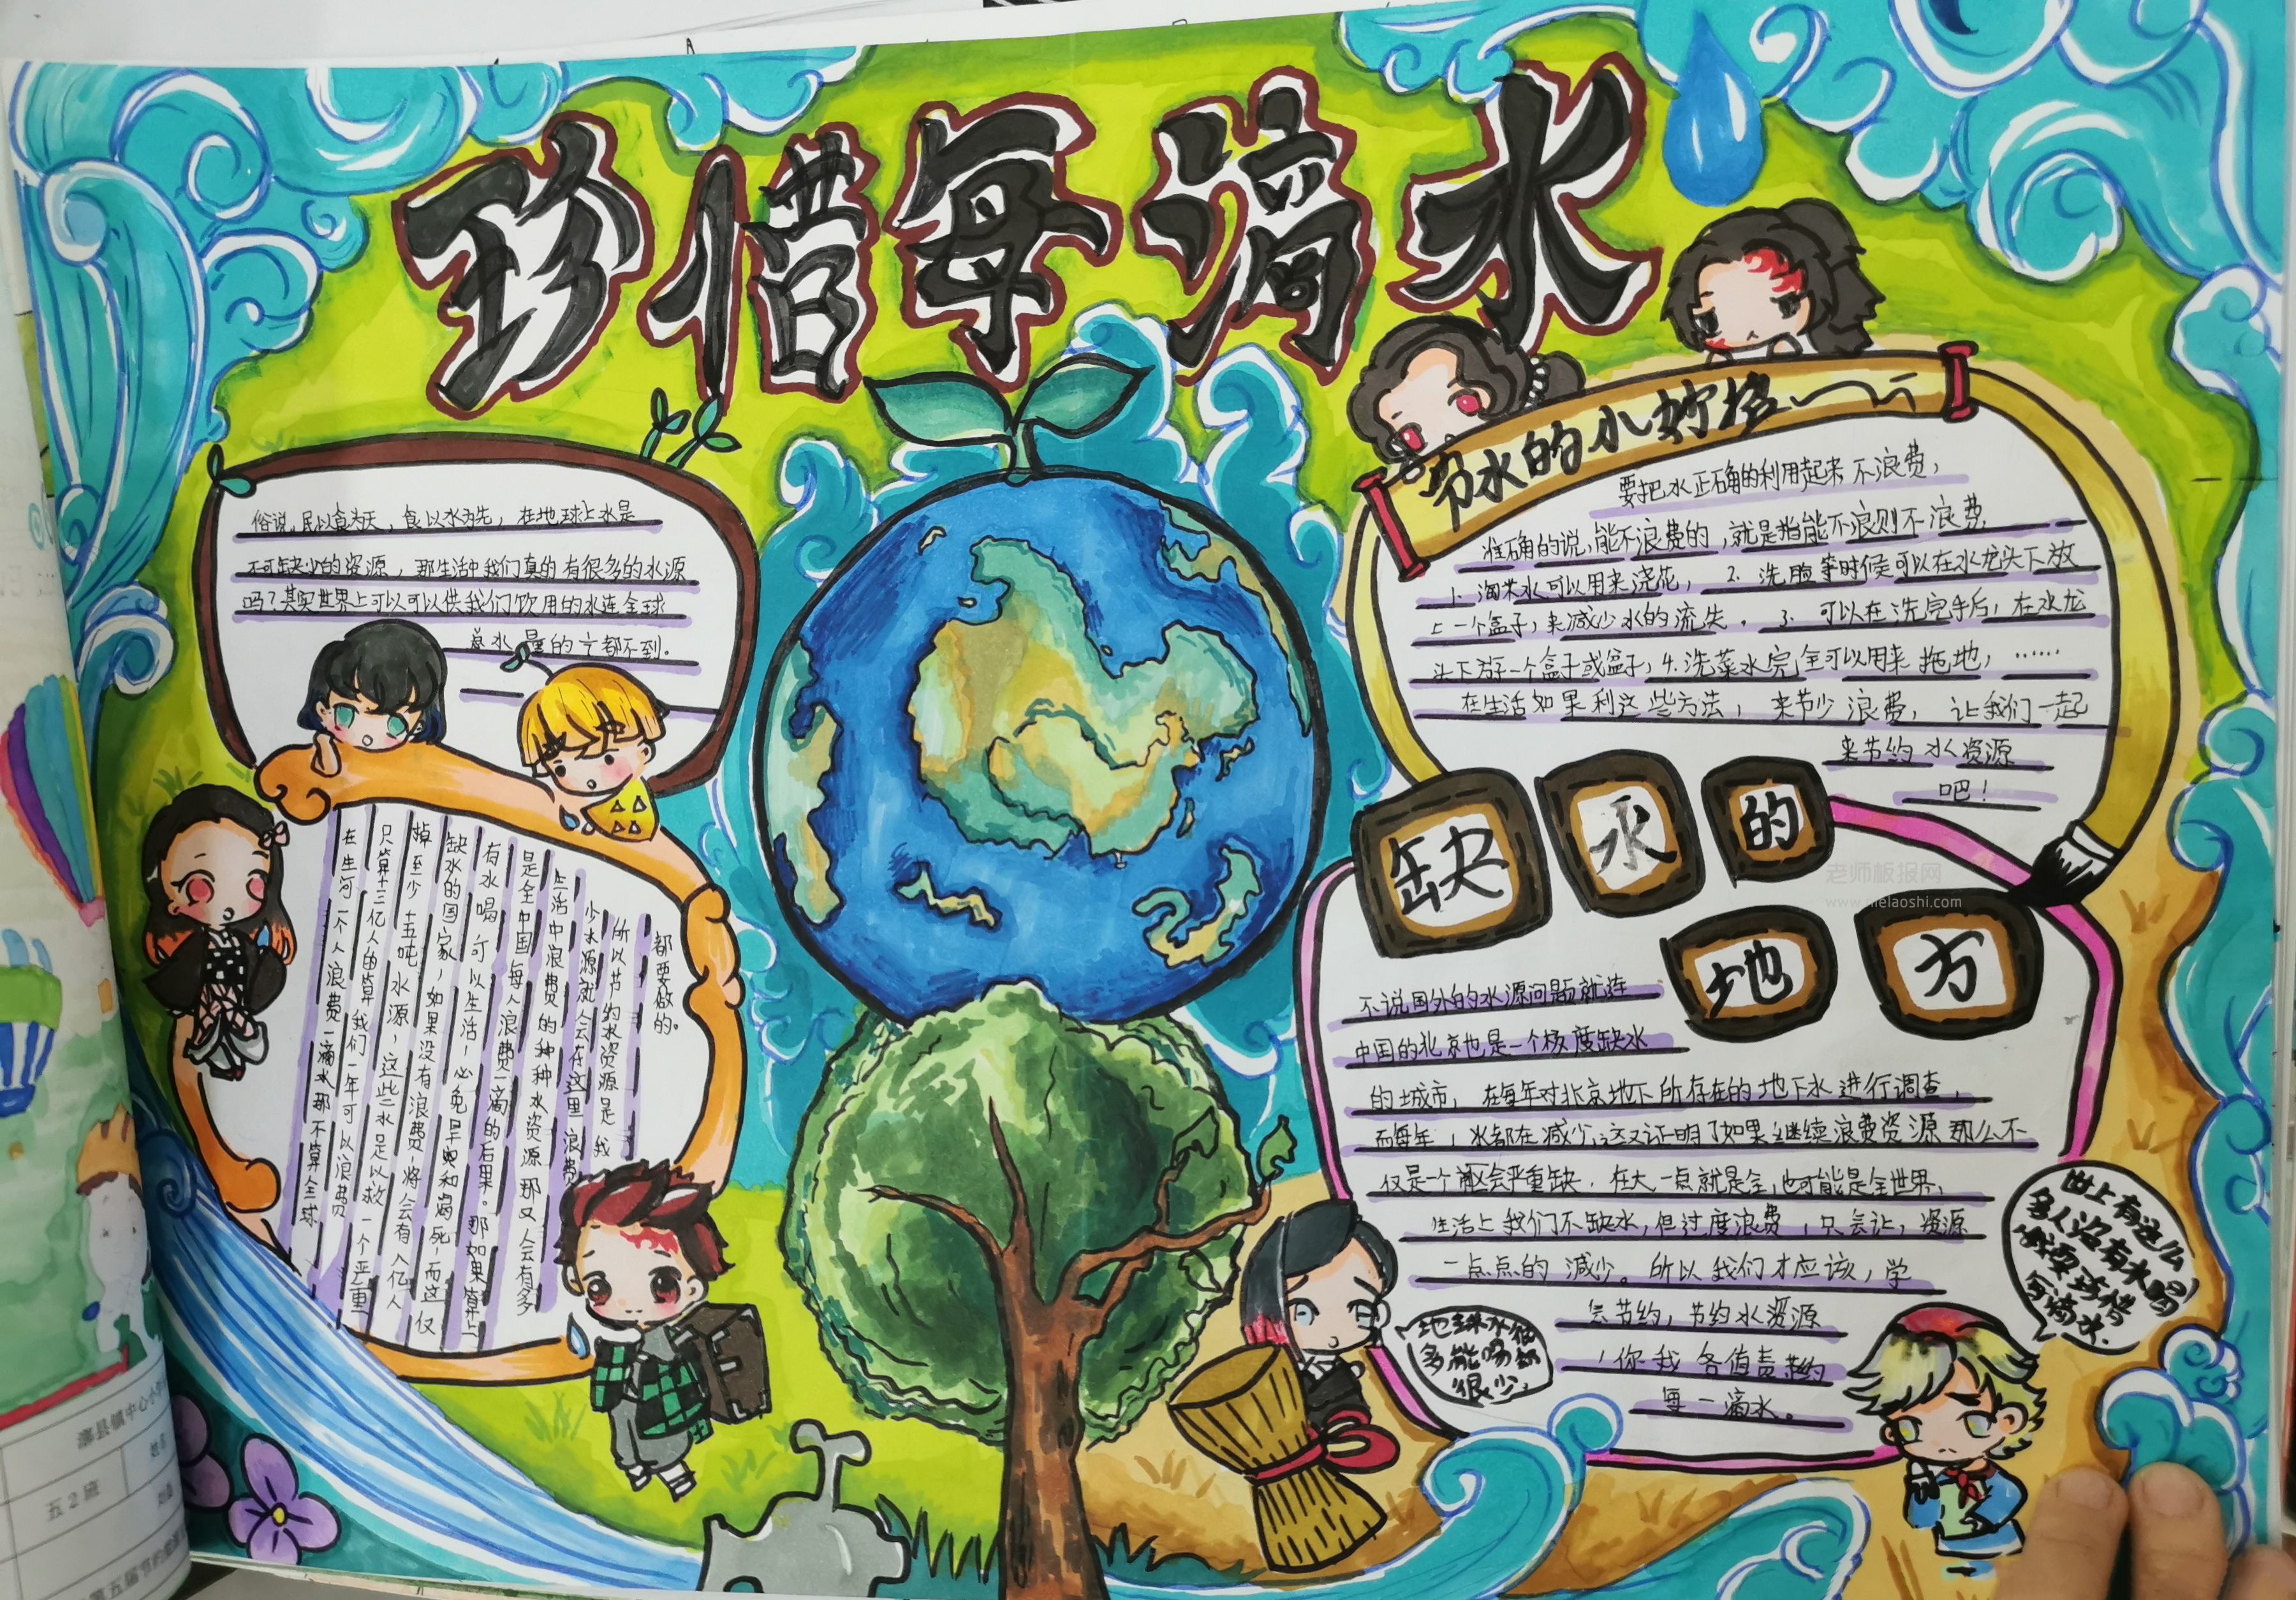 珍惜每滴水
俗说,民以食为天,食以水为先,在地球上水是
不可缺少的资源,那生活中我们真的有很多的水源
吗?其实世界上可以可以供我们饮用的水连全球
总水量的都不到。
在生河一个人浪费一滴水那不算全球
只算十三亿人的算我们一年可以浪费
掉至少十五吨水源,这些水足以救一个严重
缺水的国家,如果没有浪费,将会有八亿人
有水喝可以生活,必免旱烟和渴死,而这仅
是全中国每人浪费一滴的后果。那如果算上
生活中浪费的种种水资源那又会有多
少水源就会在这里浪费
所以节约水资源是我
都要做的。
节水的小妙招
要把水正确的利用起来不浪费,
准确的说,能不浪费的,就是指能不浪则不浪费
1.淘米水可以用来浇花,2.洗脸等时候可以在水龙头下放
上一个盒子,来减少水的流失。3.可以在洗完手后,在水龙
头下存一个盒子或盆子,4.洗菜水完全可以用来拖地,……
在生活如果利这些方法,来节少浪费,让我们一起
来节约水资源
吧!
缺水的
地方
老师板报网
不说国外的水源问题就连
中国的北京也是一个极度缺水
的城市,在每年对北京地下所存在的地下水进行调查,
而每年,水都在减少,这又证明了如果继续浪费资源那么不
仅是一个区会严重缺.在大一点就是全,也可能是全世界,
生活上我们不缺水,但过度浪费,只会让,资源
一点点的减少。所以我们才应该,学
会节约,节约水资源
,你我各值责约
每一滴水。
地球水很
多能喝的
很少.
世上有这么
多人没有水喝
你要珍惜
每滴水.
漷县镇中心小学
五2班
姓名